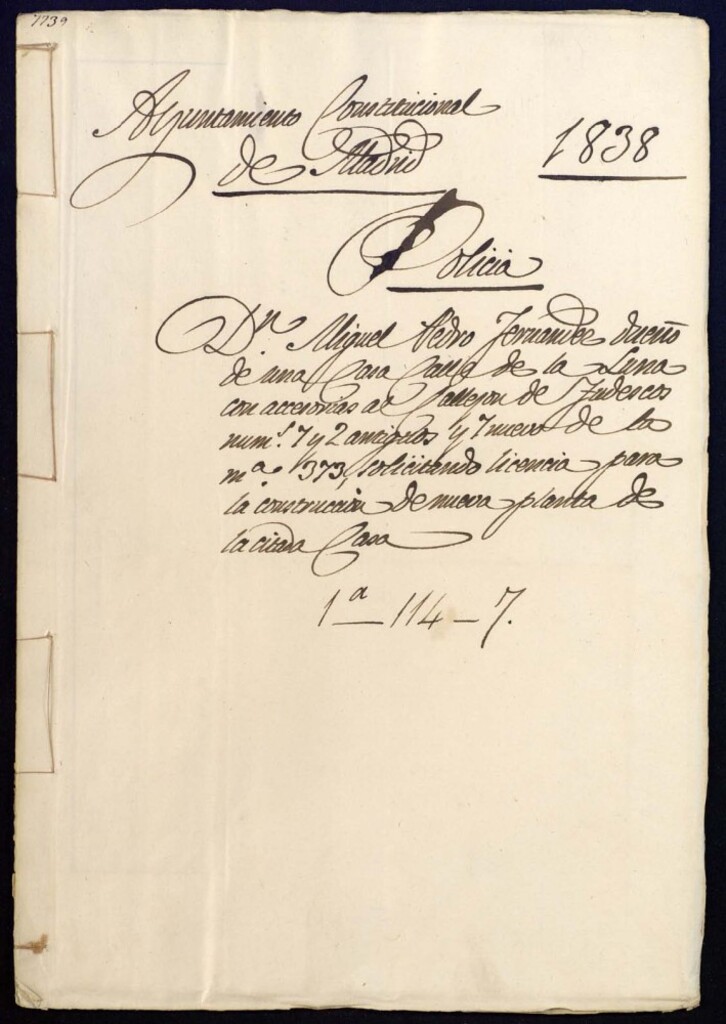 7739
Ayuntamiento Constitucional
de Madrid
1838
Policia
Dn. Miguel Pedro Fernandez dueño
de una Casa Calle de la Luna
con accesorias al Callejon de Tudescos
num.s 7 y 2 antiguos y 7 nuevo de la
m.a 373, solicitando licencia para
la construccion de nueva planta de
la citada Casa
1a - 114 - 7.